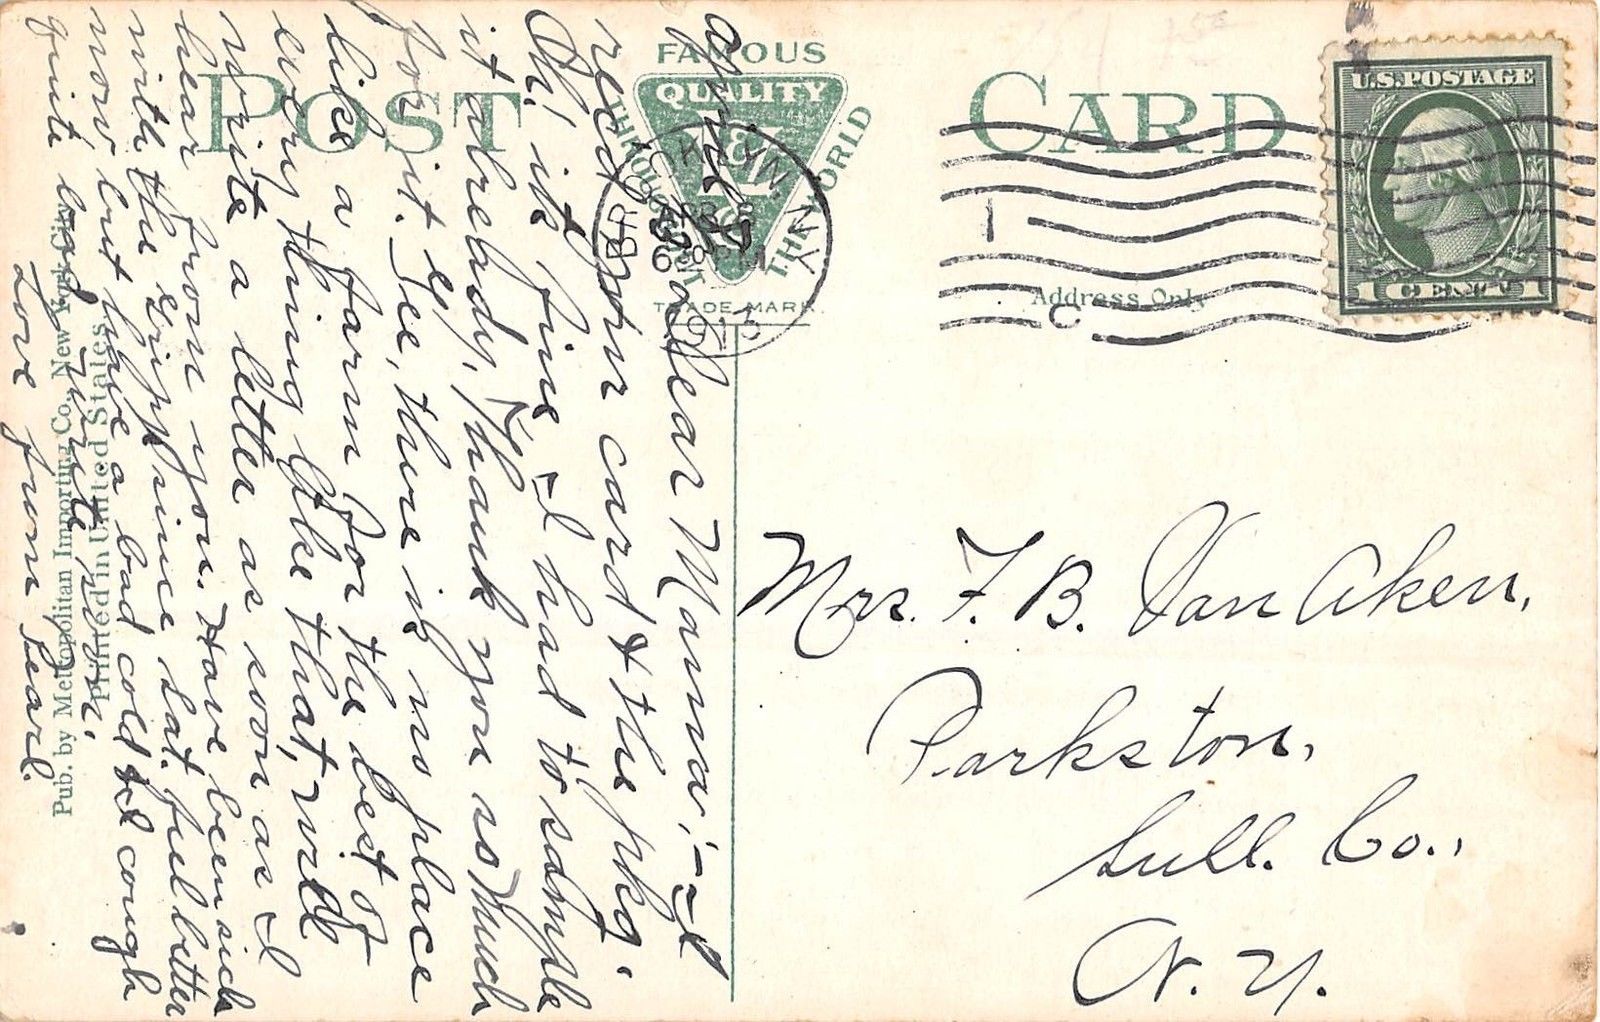 POST CARD
FAMOUS
QUALITY
THROUGHOUT THE WORLD
TRADE MARK
BROOKLYN, N.Y.
APR 8
6 30 PM
1915
U.S. POSTAGE
1 CENT 1
Address Only
April 8. Dear Mama:- I
recd your card & the pkg.
Oh! its fine. I had to sample
it already, Thank you so Much
for it. Gee, there is no place
like a farm for the best of
every thing like that, will
write a letter as soon as I
hear from you. Have been sick
with the Gripp since Sat. feel better
now, but have a bad cold and cough
quite bad. Write soon.
Love from Pearl.
Mrs. F. B. Van Aken,
Parkston,
Sull. Co.,
N. Y.
Pub. by Metropolitan Importing Co., New York City
Printed in United States